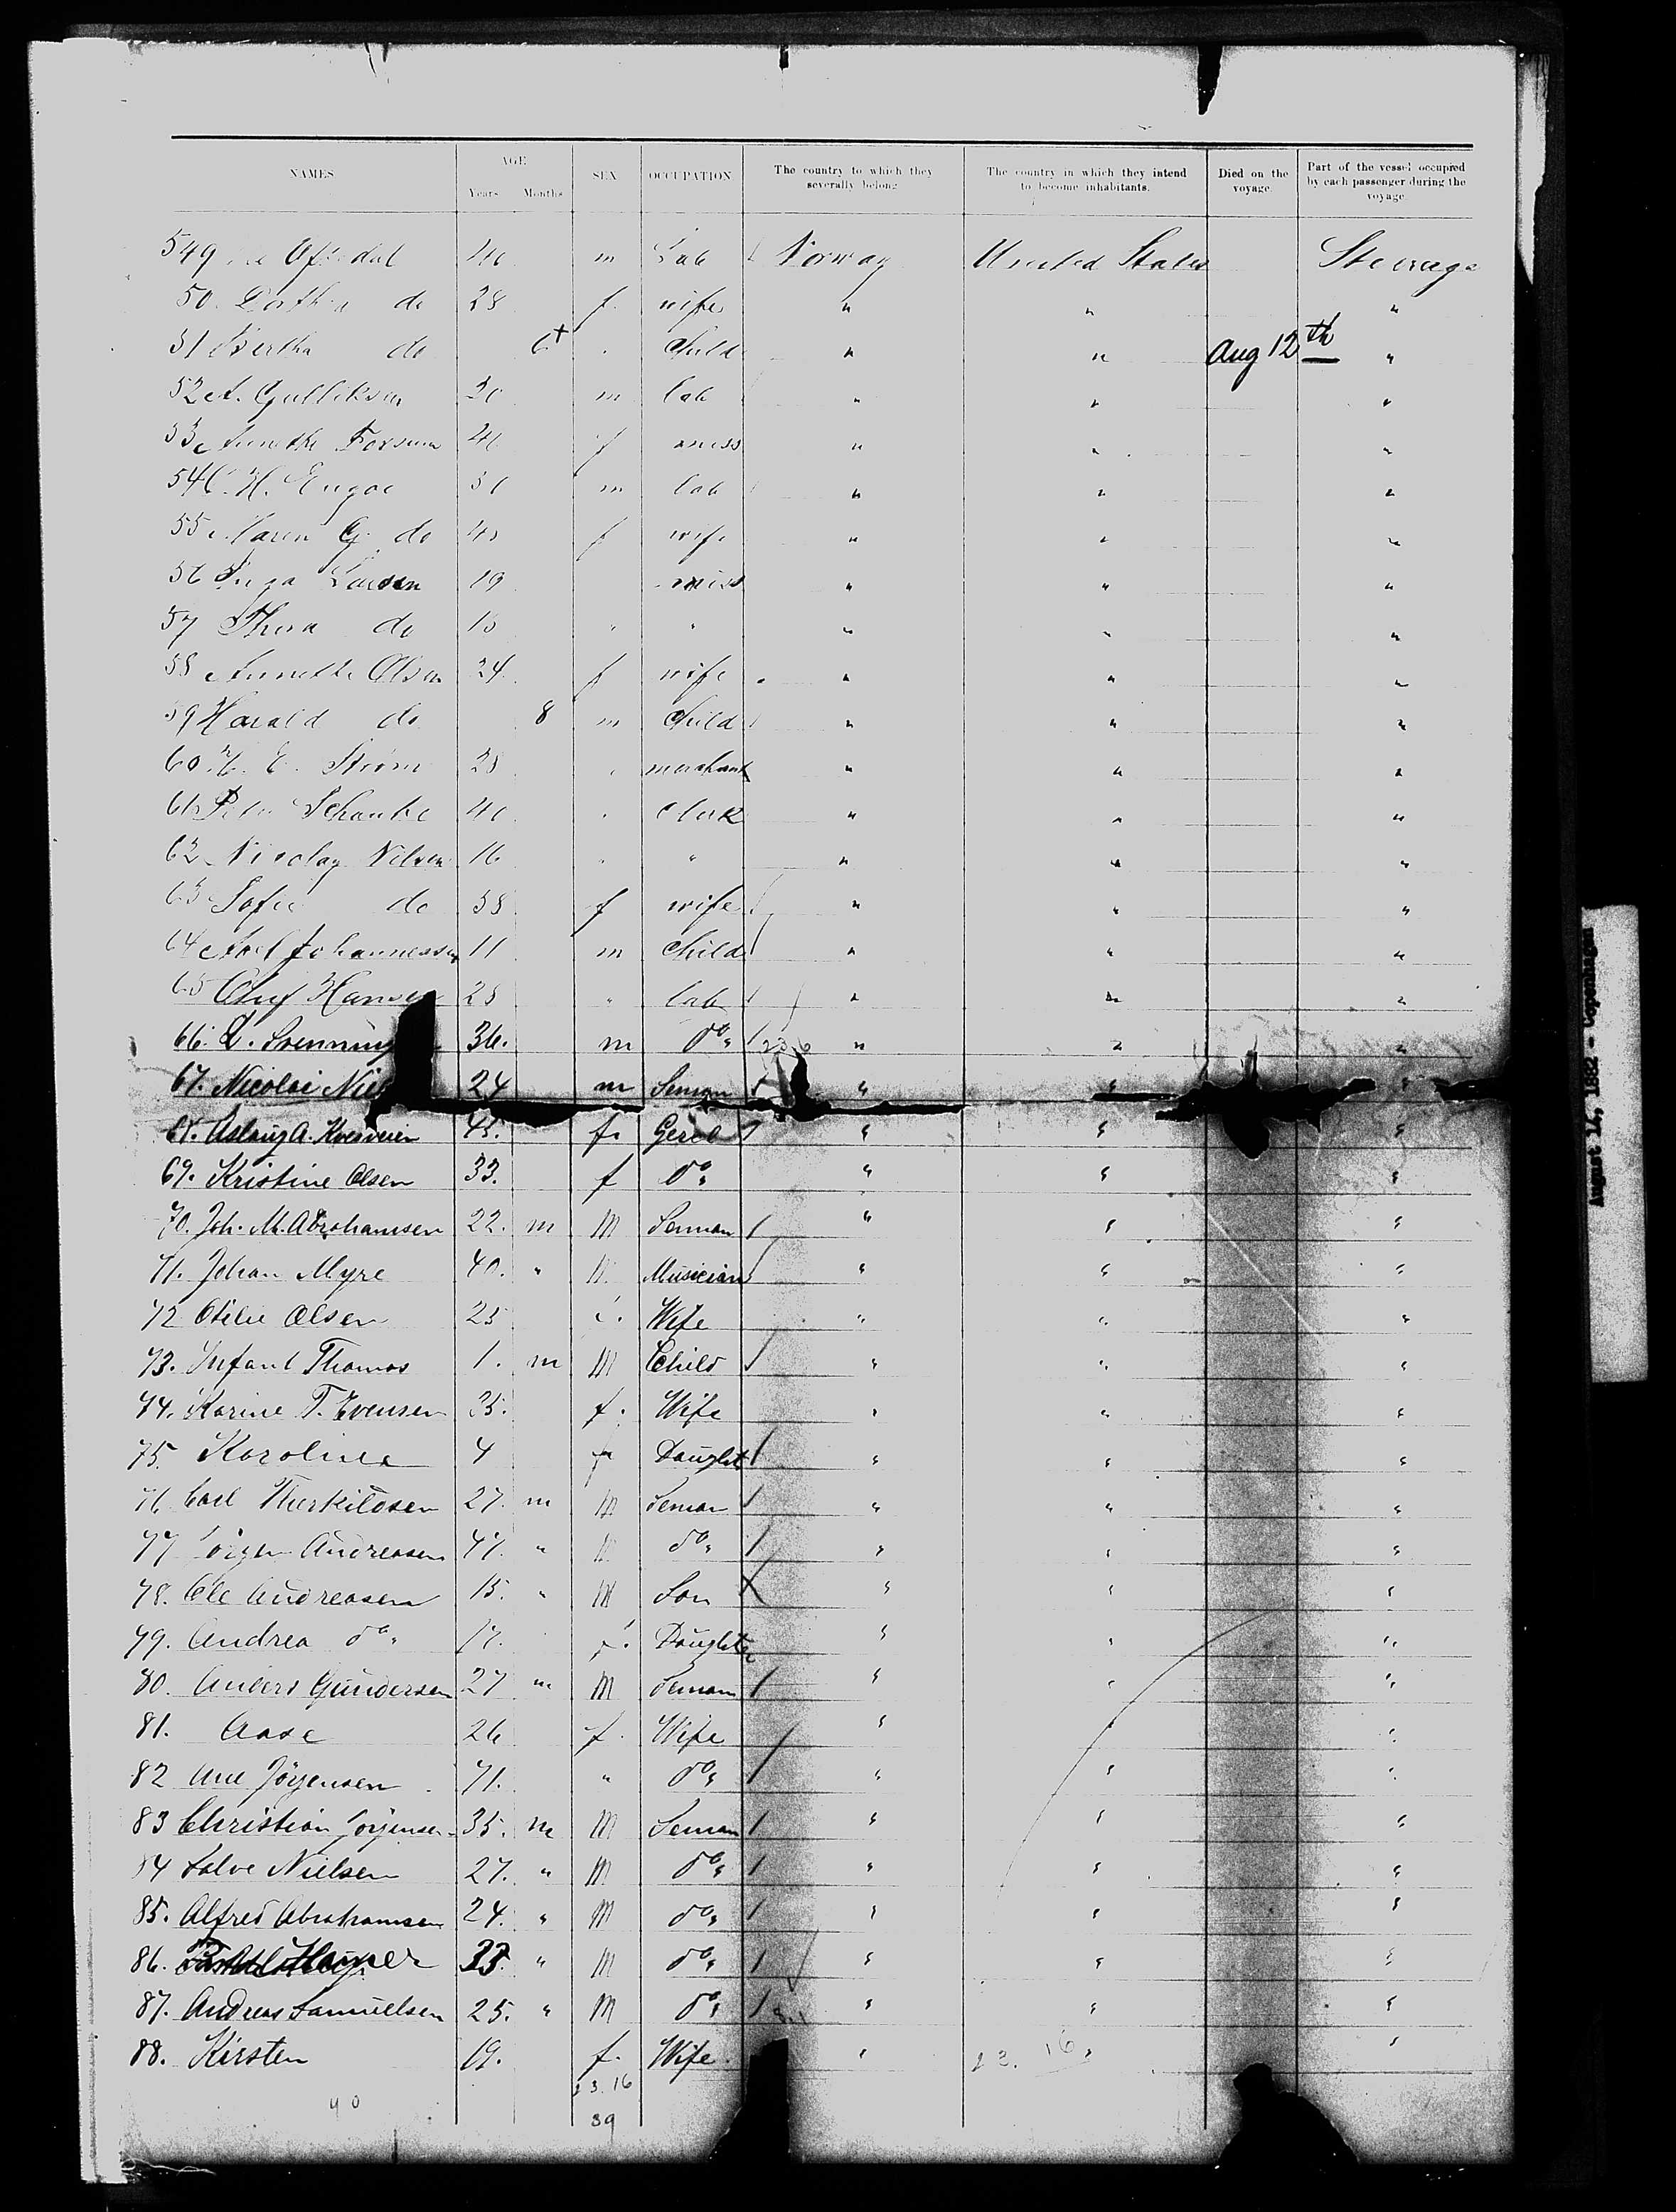 NAMES AGE Years Months SEX OCCUPATION The country to which they severally belong The country in which they intend to become inhabitants. Died on the voyage. Part of the vessel occupied by each passenger during the voyage
549 m Lab Norway United States Steerage
50. do 28 f. wife " " "
51 Bertha do 6+ . Child " " Aug 12th "
52 A. Gulliksen 20 m lab " " "
53 f miss " " "
54 C. H. m lab " " "
55 Maren G. do f wife " " "
56 Inga Larsen 19 miss " " "
57 Thora do " " " " "
58 Annethe Olsen 24 f wife " " "
59 Harald do 8 m Child " " "
60 E. Strom 28 " merchant " " "
61 Peter Schanke 40 " Clerk " " "
62 Nicolay Nilsen 16 " " " " "
63 Sofie do 38 f wife " " "
64 Axel Johannessen 11 m Child " " "
65 Oluf Hansen 28 " lab " " "
66. Svenning 36. m do " " "
67. Nicolai Nie 24 m Seman " " "
68. Aslaug A. 45. f. " " "
69. Kristine Olsen 33. f do " " "
70. Joh. M. Abrahamsen 22. m M Seman " " "
71. Johan Myre 40. " M Musician " " "
72 Otilie Olsen 25 f. Wife " " "
73. Infant Thomas 1. m M Child " " "
74. Karine T. Evensen 35. f. Wife " " "
75. Karoline 4 f Daughter " " "
76. Carl Therkildsen 27. m M Seman " " "
77 Jörgen Andreasen 47. " M do " " "
78. Ole Andreasen 15. " M Son " " "
79. Andrea do 17. f. Daughter " " "
80. Anders Gundersen 27 m M Seman " " "
81. Aase 26 f. Wife " " "
82 Ane Jörgensen 71. " do " " "
83 Christian Jörgensen 35. m M Seman " " "
84 Salve Nielsen 27. " M do " " "
85. Alfred Abrahamsen 24. " M do " " "
86. " M do " " "
87. Andreas Samuelsen 25. " M do " " "
88. Kirsten 19. f. Wife " 23. 16 "
23. 16
40 39
August 14, 1882 - Copenhagen